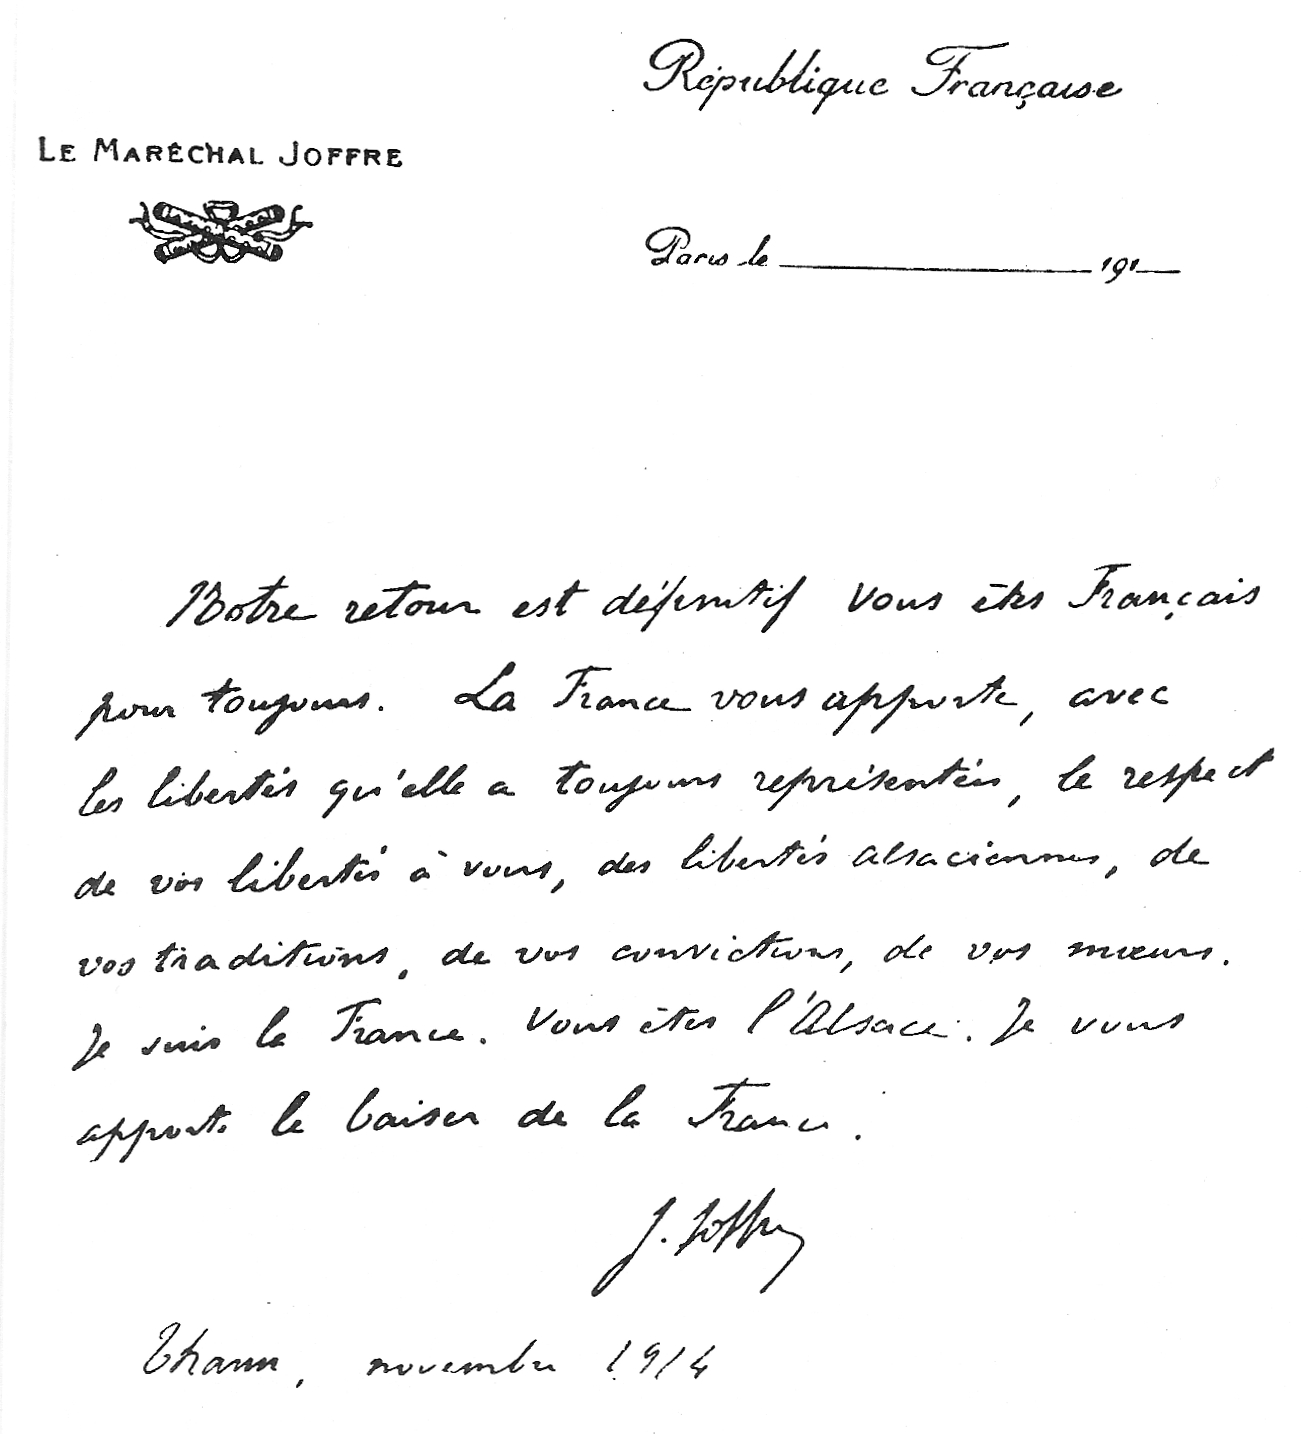 République Française
LE MARÉCHAL JOFFRE
Paris le 191
Notre retour est définitif Vous êtes Français
pour toujours. La France vous apporte, avec
les libertés qu'elle a toujours représentées, le respect
de vos libertés à vous, des libertés alsaciennes, de
vos traditions, de vos convictions, de vos mœurs.
Je suis la France. Vous êtes l'Alsace. Je vous
apporte le baiser de la France.
J. Joffre
Thann, novembre 1914